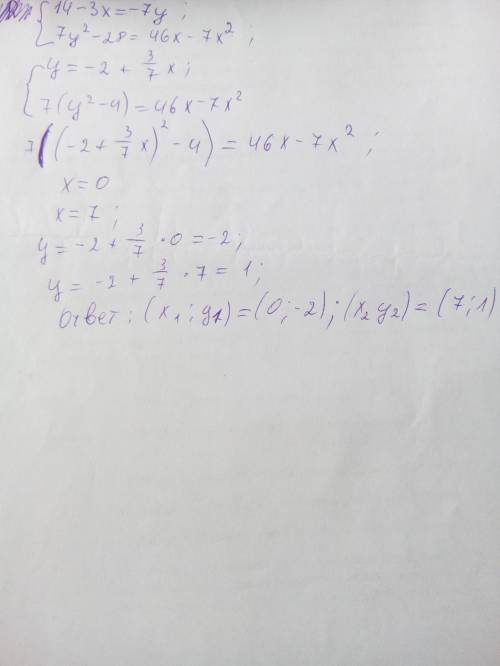 14-3x=-7y;
7y²-28=46x-7x²;
y=-2+3/7x;
7(y²-4)=46x-7x²
7((-2+3/7x)²-4)=46x-7x²;
x=0
x=7;
y=-2+3/7•0=-2;
y=-2+3/7•7=1;
Ответ: (x₁;y₁)=(0;-2);(x₂y₂)=(7;1)